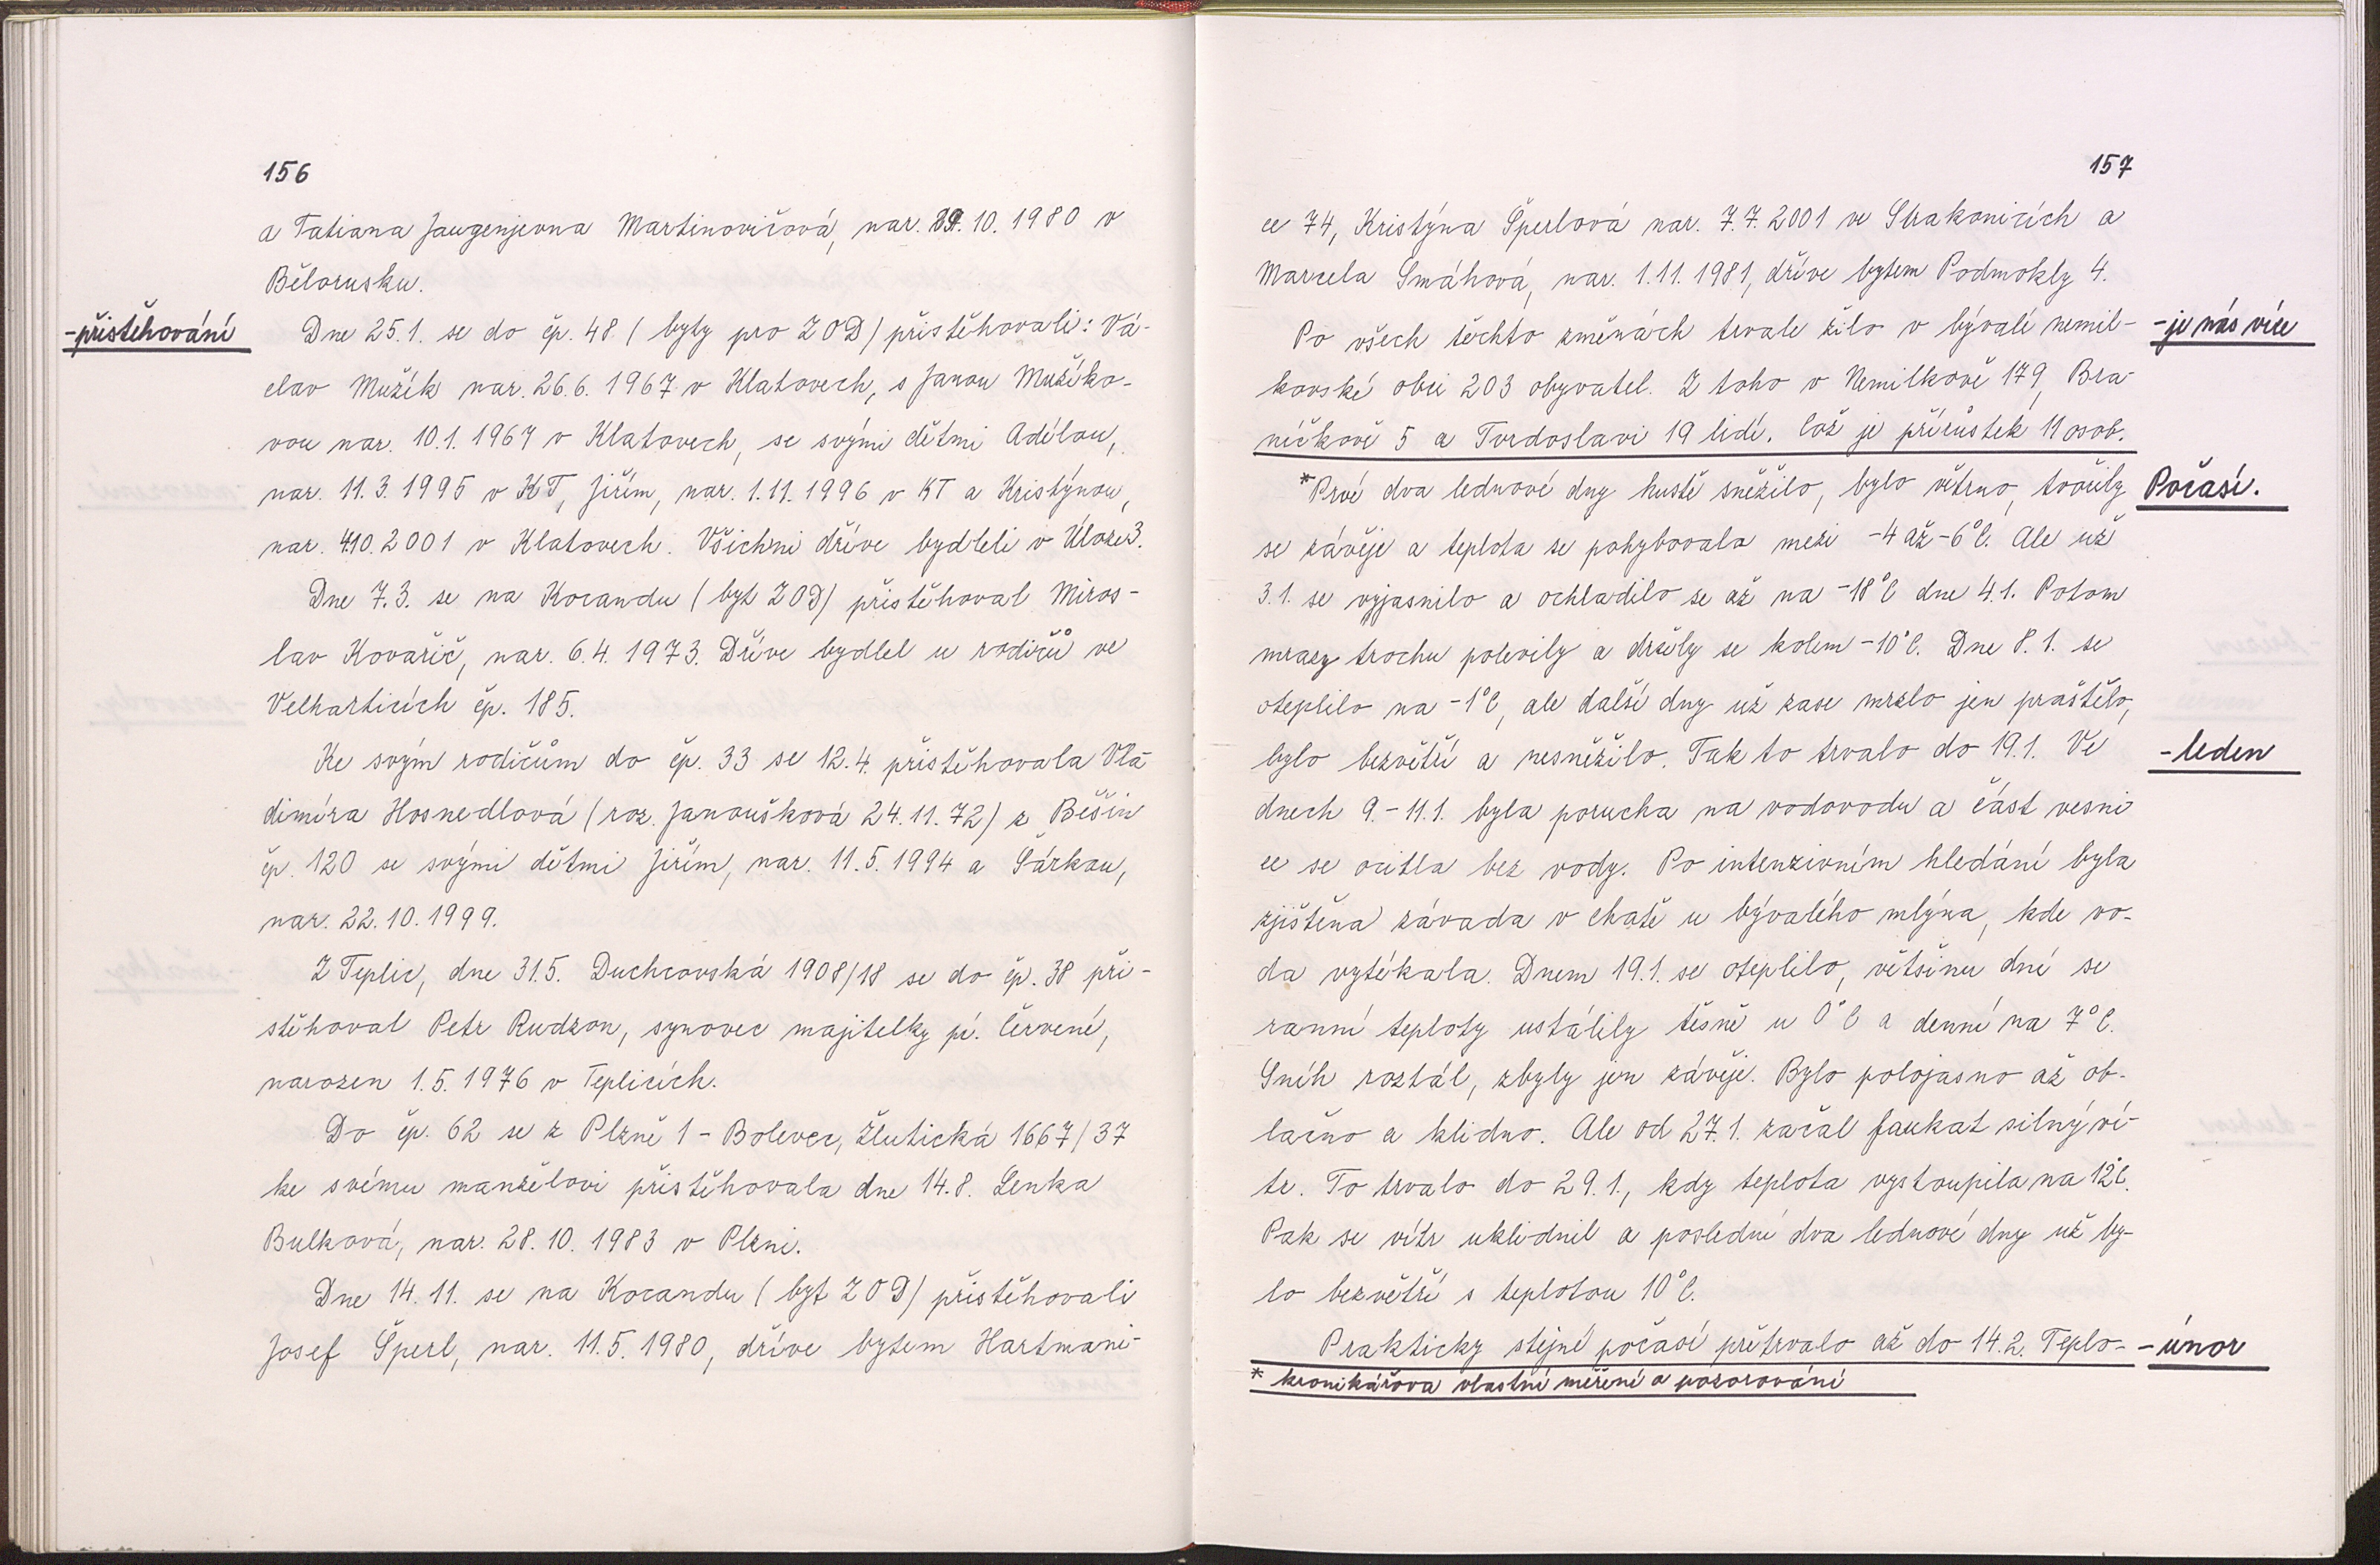 156
a Tatiana Jaugenjevna Martinovičová, nar. 10. 1980 v
Bělorusku.
-přistěhování
Dne 25.1. se do čp. 48 ( byty pro ZOD) přistěhovali: Vá-
clav Mužík nar. 26.6. 1967 v Klatovech, s Janou Mužíko-
vou nar. 10.1. 1967 v Klatovech, se svými dětmi Adélou,
nar. 11.3. 1995 v KT, Jiřím, nar. 1.11. 1996 v KT a Kristýnou,
nar. 4.10. 2001 v Klatovech. Všichni dříve bydleli v Úloze 3.
Dne 7.3. se na Kocandu ( byt ZOD) přistěhoval Miros-
lav Kovařič, nar. 6.4. 1973. Dříve bydlel u rodičů ve
Velharticích čp. 185.
Ke svým rodičům do čp. 33 se 12.4. přistěhovala Vla-
dimíra Hosnedlová (roz. Janoušková 24.11.72) z Běšin
čp. 120 se svými dětmi Jiřím, nar. 11.5. 1994 a Šárkou,
nar. 22.10. 1999.
Z Teplic, dne 31.5. Duchcovská 1908/18 se do čp. 38 při-
stěhoval Petr Rudzon, synovec majitelky pí. Červené,
narozen 1.5. 1976 v Teplicích.
Do čp. 62 se z Plzně 1 - Bolevec, Žlutická 1667/37
ke svému manželovi přistěhovala dne 14.8. Lenka
Bulková, nar. 28.10. 1983 v Plzni.
Dne 14.11. se na Kocandu ( byt ZOD) přistěhovali
Josef Šperl, nar. 11.5. 1980, dříve bytem Hartmani-
157
ce 74, Kristýna Šperlová nar. 7.7. 2001 ve Strakonicích a
Marcela Smáhová, nar. 1.11. 1981, dříve bytem Podmokly 4.
Po všech těchto změnách trvale žilo v bývalé nemil-
-je nás více
kovské obci 203 obyvatel. Z toho v Nemilkově 179, Bra-
níčkově 5 a Tvrdoslavi 19 lidí. Což je přírůstek 11 osob.
*Prvé dva lednové dny hustě sněžilo, bylo větrno, tvořily
Počasí.
se závěje a teplota se pohybovala mezi -4 až -6°C. Ale už
3.1. se vyjasnilo a ochladilo se až na -18°C dne 4.1. Potom
mrazy trochu polevily a držely se kolem -10°C. Dne 8.1. se
oteplilo na -1°C, ale další dny už zase mrzlo jen praštělo,
bylo bezvětří a nesněžilo. Tak to trvalo do 19.1. Ve
-leden
dnech 9. - 11.1. byla porucha na vodovodu a část vesni
ce se ocitla bez vody. Po intenzivním hledání byla
zjištěna závada v chatě u bývalého mlýna, kde vo-
da vytékala. Dnem 19.1. se oteplilo, většinu dní se
ranní teploty ustálily těsně u 0°C a denní na 7°C.
Sníh roztál, zbyly jen závěje. Bylo polojasno až ob-
lačno a klidno. Ale od 27.1. začal foukat silný ví-
tr. To trvalo do 29.1., kdy teplota vystoupila na 12°C.
Pak se vítr uklidnil a poslední dva lednové dny už by-
lo bezvětří s teplotou 10°C.
Prakticky stejné počasí přetrvalo až do 14.2. Teplo-
-únor
* kronikářova vlastní měření a pozorování